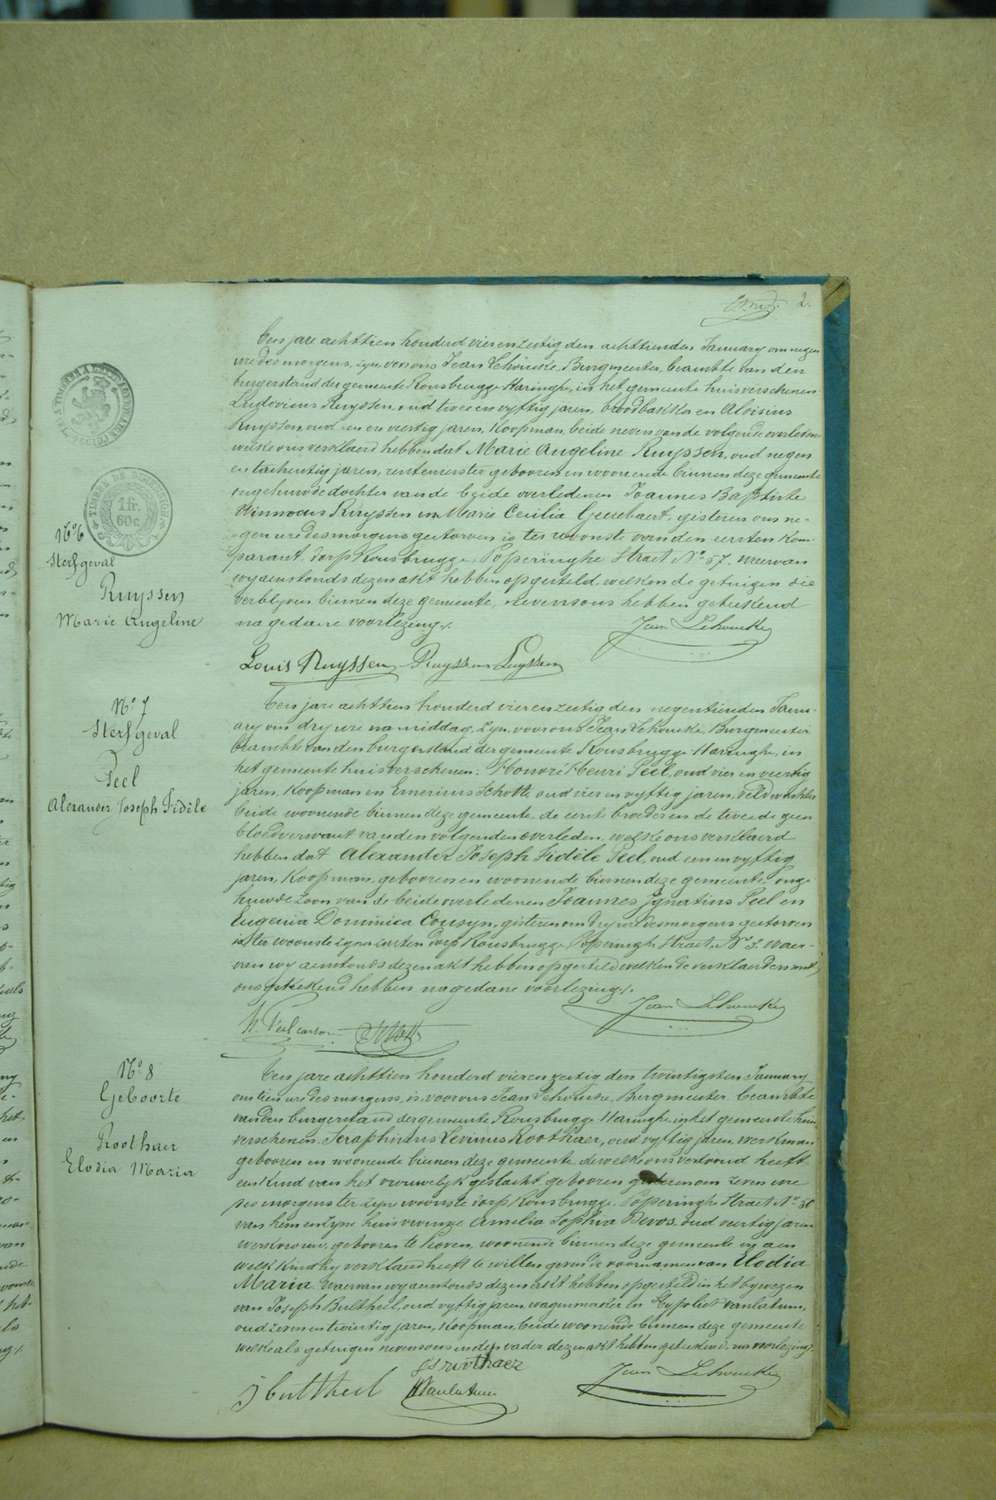 2.
Den jare achttien honderd vierenzestig den achttienden January om negen
ure des morgens, zyn voor ons Jean Lehoucke, Burgmeester, beambte van den
burgerstand der gemeente Rousbrugge-Haringhe, in het gemeente huis verschenen
Ludovicus Ruyssen, oud twee en vyftig jaren, broodbakker en Aloisius
Ruyssen, oud een en veertig jaren, koopman, beide neven van de volgende overleden
welke ons verklaerd hebben dat Marie Angeline Ruyssen, oud negen
en tachentig jaren, rentenierster gebooren en woonende binnen deze gemeente
ongehuwde dochter van de beide overledenen Joannes Baptiste
Ruyssen en Marie Cecilia, gisteren om ne-
gen ure des morgens gestorven is ter woonste van den eersten kom-
parant, dorp Rousbrugge, Poperinghe Straet No 57. waervan
wy aenstonds dezen akt hebben opgesteld, welken de getuigen die
verblyven binnen deze gemeente, nevens ons hebben geteekend
na gedaene voorlezing.
Jean Lehoucke
Louis Ruyssen Ruyssen Luyssen
No 6
Sterfgeval
Ruyssen
Marie Angeline
Den jare achttien honderd vierenzestig den negentienden Janu-
ary om dry ure namiddag, zyn voor ons Jean Lehoucke, Burgmeester
beambte van den burgerstand der gemeente Rousbrugge-Haringhe, in
het gemeente huis verschenen: Honoré Henri Peel, oud vier en veertig
jaren, koopman en Emerinus Schotte oud vier en vyftig jaren, veldwachter
beide woonende binnen deze gemeente, de eerste broeder en de tweede geen
bloedverwant van den volgenden overleden, welke ons verklaerd
hebben dat Alexander Joseph Fidèle Peel, oud een en vyftig
jaren, koopman, gebooren en woonende binnen deze gemeente, onge-
huwde zoon van de beide overledenen Joannes Ignatius Peel en
Eugenia Dominica Cousyn, gisteren om dry ure des morgens gestorven
is ter woonste zynen eersten dorp Rousbrugge, Poperinghe Straet, No 3. waer-
van wy aenstonds dezen akt hebben opgesteld welken de verklaerders met
ons geteekend hebben na gedane voorlezing.
Jean Lehoucke
H. Peel
No 7
Sterfgeval
Peel
Alexander Joseph Fidèle
Den jare achttien honderd vierenzestig den twintigsten January
om tien ure des morgens, is voor ons Jean Lehoucke, Burgmeester beambte
van den burgerstand der gemeente Rousbrugge-Haringhe, in het gemeente huis
verschenen Seraphinus Levinus Roothaer, oud vyftig jaren, werkman
gebooren en woonende binnen deze gemeente dewelke ons vertoond heeft
een kind van het vrouwelyk geslacht, gebooren gisteren om zeven ure
des morgens ter zyne woonste dorp Rousbrugge, Poperinghe Straet No 38
van hem en zyne huisvrouwe Amelia Sophia Devos, oud veertig jaren
werkvrouw, gebooren te Hoven, woonende binnen deze gemeente en aen
welk kind hy verklaerd heeft te willen geven de voornamen van Elodia
Maria. Waervan wy aenstonds dezen akt hebben opgesteld in het bywezen
van Joseph Bultheel, oud vyftig jaren, wagenmaker en Hypoliet Vanlatum,
oud zeven en twintig jaren, koopman, beide woonende binnen deze gemeente
welke als getuigen nevens ons en den vader dezen akt hebben geteekend, na voorlezing.
SL Roothaer
J Bultheel
HVanlatum
Jean Lehoucke
No 8
Geboorte
Roothaer
Elodia Maria
1 fr.
60c.